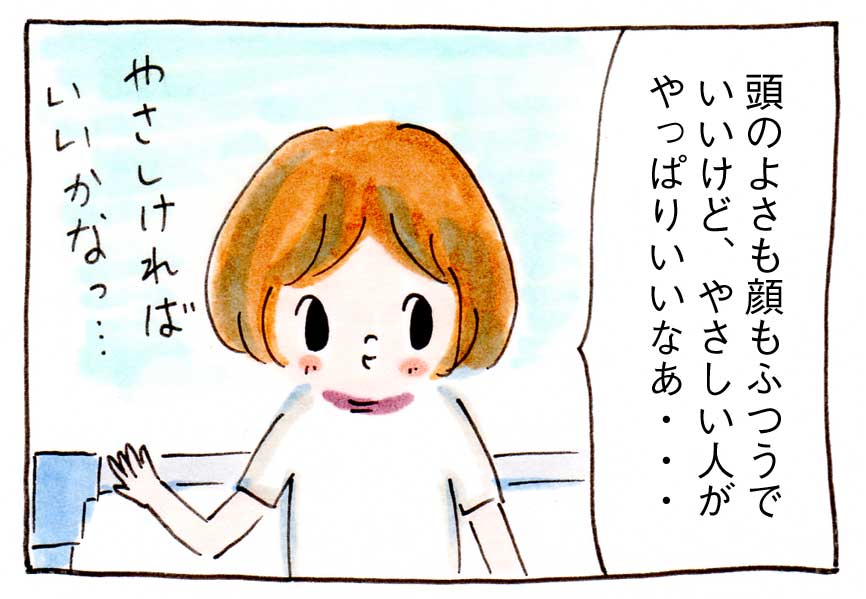 頭のよさも顔もふつうで
いいけど、やさしい人が
やっぱりいいなあ・・・
やさしければ
いいかなっ…